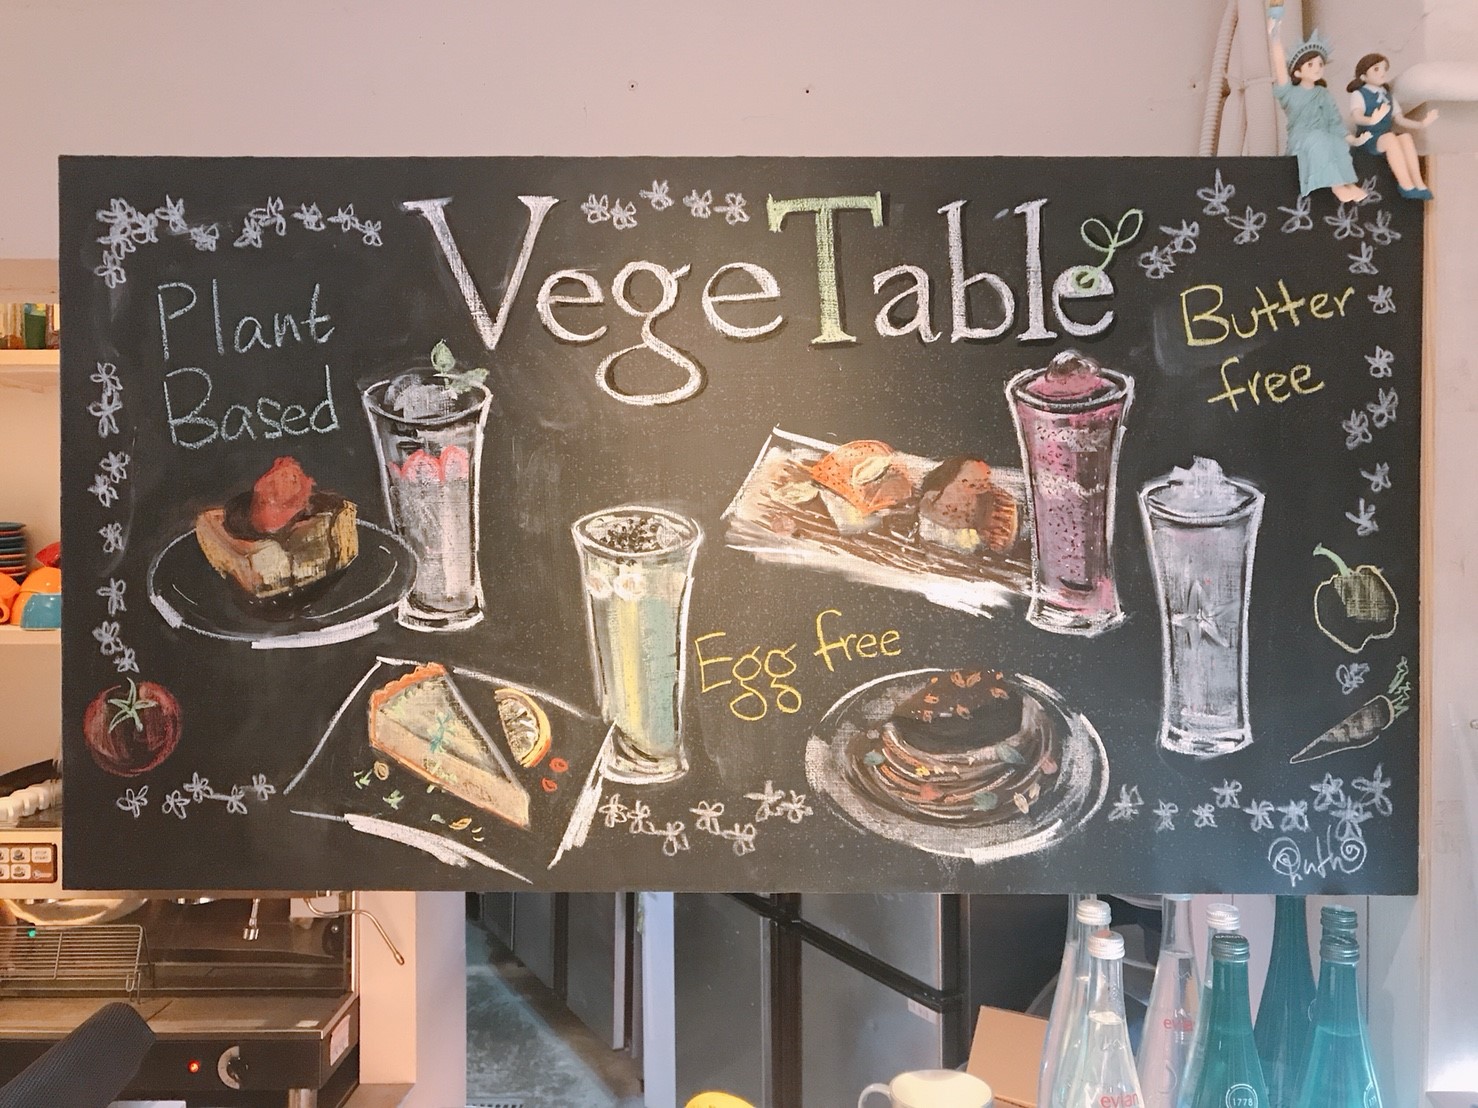 VegeTable
Plant
Based
Butter
free
Egg free
Ruth
evian
evian
1778